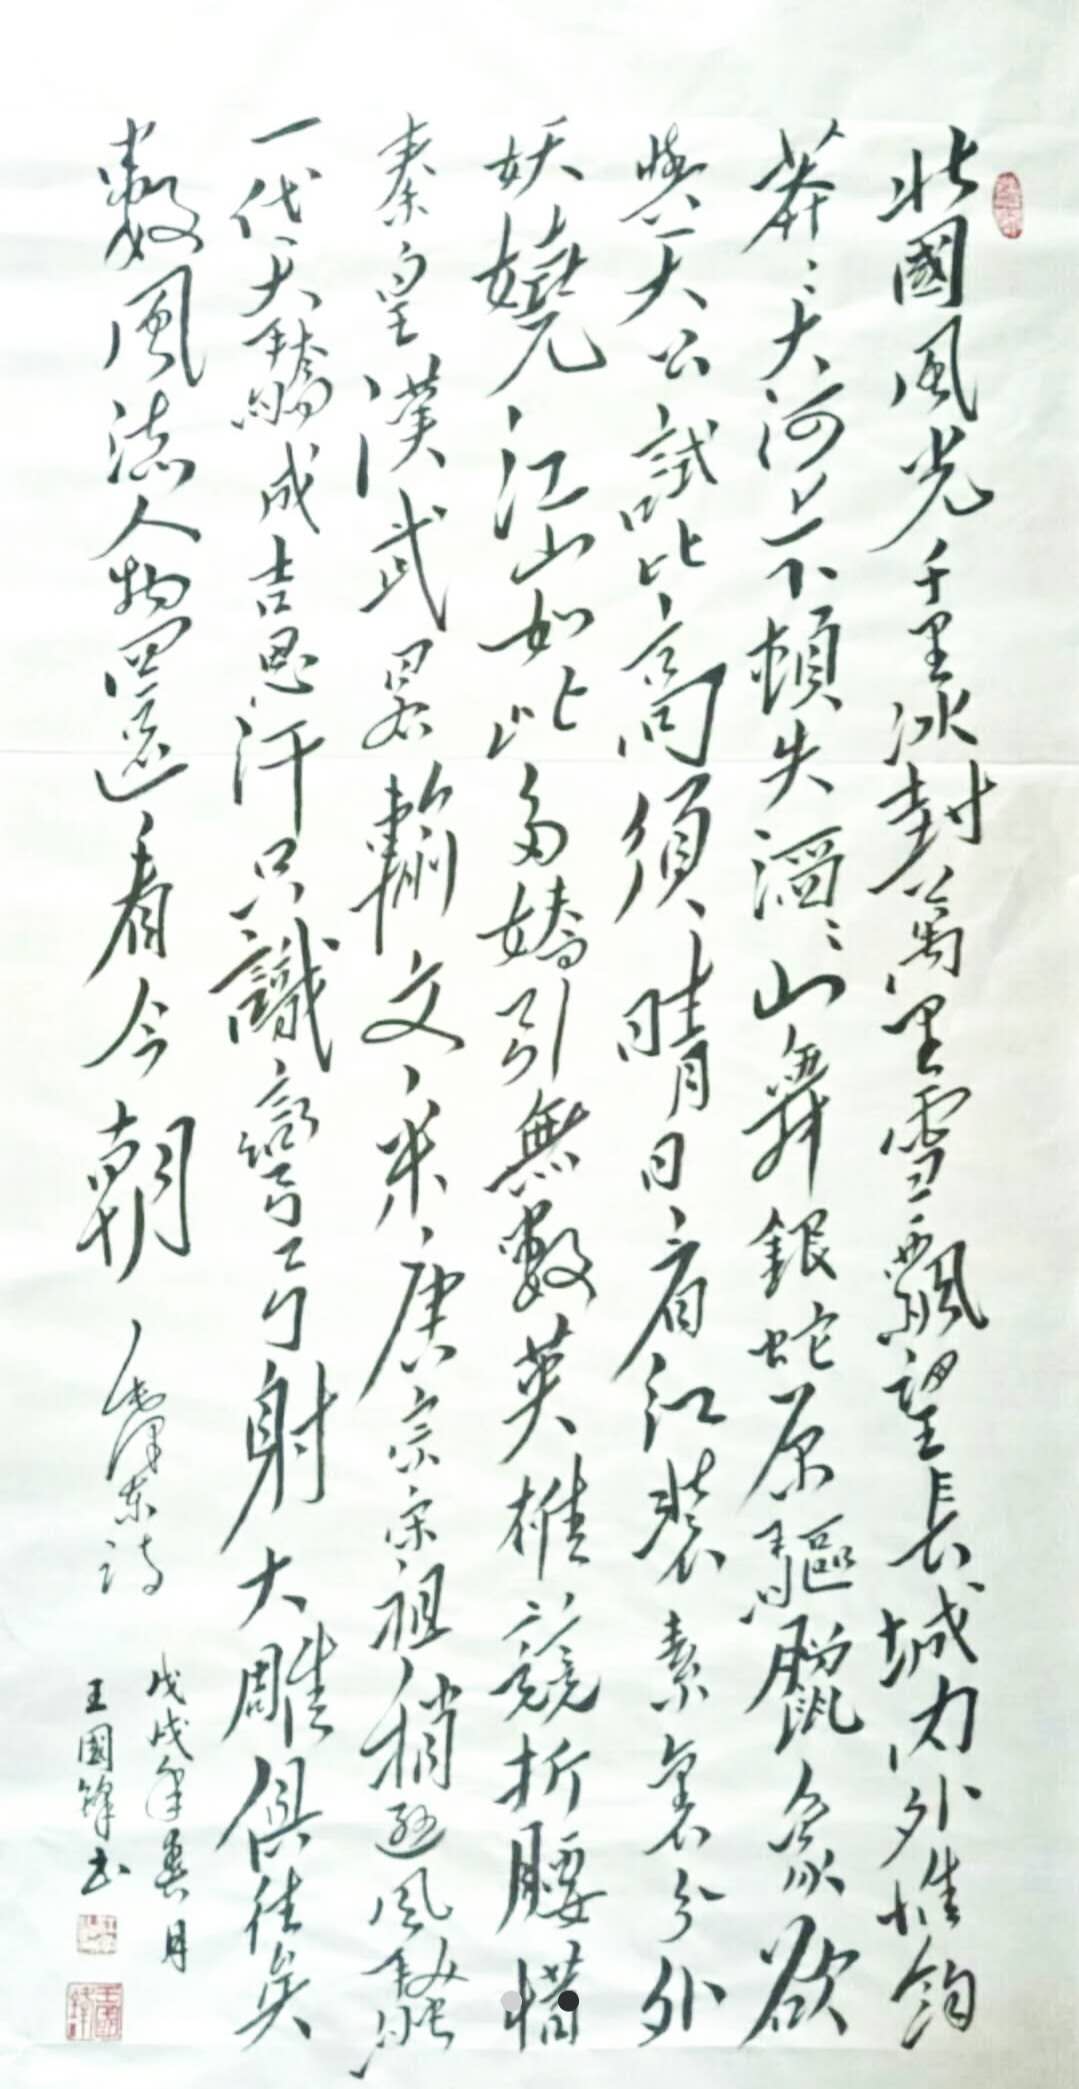 北國風光千里冰封萬里雪飄望長城内外惟餘
莽〻大河上下頓失滔〻山舞銀蛇原驅臘象欲
與天公試比高須晴日看紅裝素裹分外
妖嬈江山如此多嬌引無數英雄競折腰惜
秦皇漢武畧輸文采唐宗宋祖稍遜風騷
一代天驕成吉思汗只識彎弓射大雕俱往矣
數風流人物還看今朝 毛澤東詩
戊戌年春月
王國鋒書